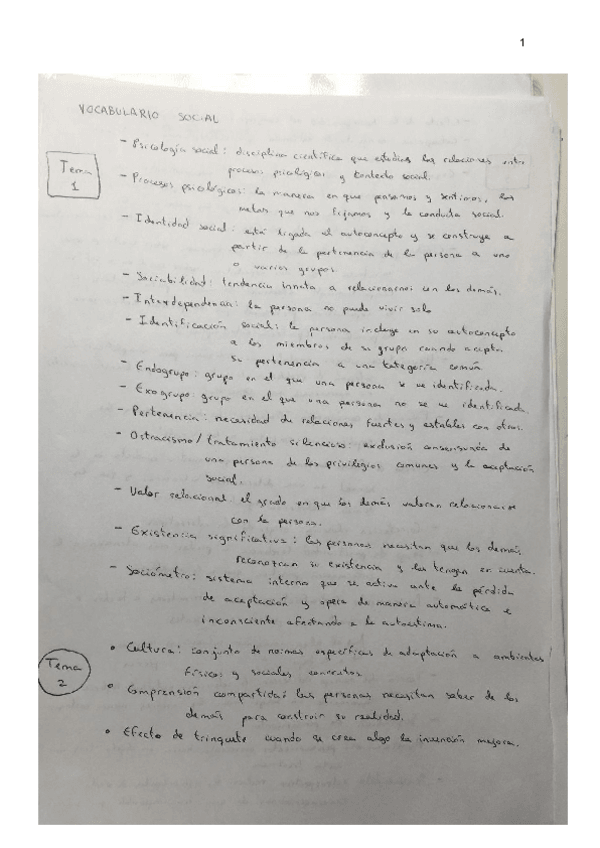 1
VOCABULARIO SOCIAL
Tema 1
- Psicología social: disciplina científica que estudia las relaciones entre
procesos psicológicos y contexto social.
- Procesos psicológicos: la manera en que pensamos y sentimos, las
metas que nos fijamos y la conducta social.
- Identidad social: está ligada al autoconcepto y se construye a
partir de la pertenencia de la persona a uno
o varios grupos.
- Sociabilidad: tendencia innata a relacionarnos con los demás.
- Interdependencia: la persona no puede vivir sola
- Identificación social: la persona incluye en su autoconcepto
a los miembros de su grupo cuando acepta
su pertenencia a una categoría común
- Endogrupo: grupo en el que una persona se ve identificada.
- Exogrupo: grupo en el que una persona no se ve identificada.
- Pertenencia: necesidad de relaciones fuertes y estables con otros.
- Ostracismo / tratamiento silencioso: exclusión consensuada de
una persona de los privilegios comunes y la aceptación
social.
- Valor relacional: el grado en que los demás valoran relacionarse
con la persona.
- Existencia significativa: las personas necesitan que los demás
reconozcan su existencia y las tengan en cuenta.
- Sociómetro: sistema interno que se activa ante la pérdida
de aceptación y opera de manera automática e
inconsciente afectando a la autoestima.
Tema 2
• Cultura: conjunto de normas específicas de adaptación a ambientes
físicos y sociales concretos
• Comprensión compartida: las personas necesitan saber de los
demás para construir su realidad.
• Efecto de trinquete cuando se crea algo la invención mejora.